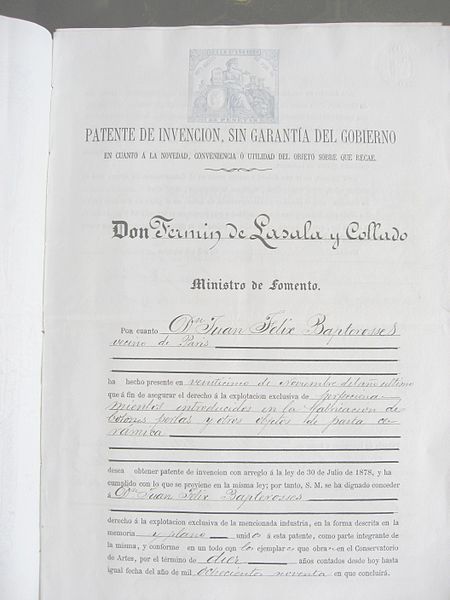 PATENTE DE INVENCION, SIN GARANTÍA DEL GOBIERNO
EN CUANTO Á LA NOVEDAD, CONVENIENCIA Ó UTILIDAD DEL OBJETO SOBRE QUE RECAE.
Don Fermin de Lasala y Collado
Ministro de Fomento.
Por cuanto Dn Juan Felix Bapterosses
vecino de Paris
ha hecho presente en veinticinco de Noviembre del año último
que á fin de asegurar el derecho á la explotacion exclusiva de perfecciona
mientos introducidos en la fabricacion de
botones perlas y otros objetos de pasta ce
ramica
desea obtener patente de invencion con arreglo á la ley de 30 de Julio de 1878, y ha
cumplido con lo que se previene en la misma ley; por tanto, S. M. se ha dignado conceder
á Dn Juan Felix Bapterosses
derecho á la explotacion exclusiva de la mencionada industria, en la forma descrita en la
memoria y plano unidos á esta patente, como parte integrante de
la misma, y conforme en un todo con los ejemplares que obran en el Conservatorio
de Artes, por el término de diez años contados desde hoy hasta
igual fecha del año de mil ochocientos noventa en que concluirá.